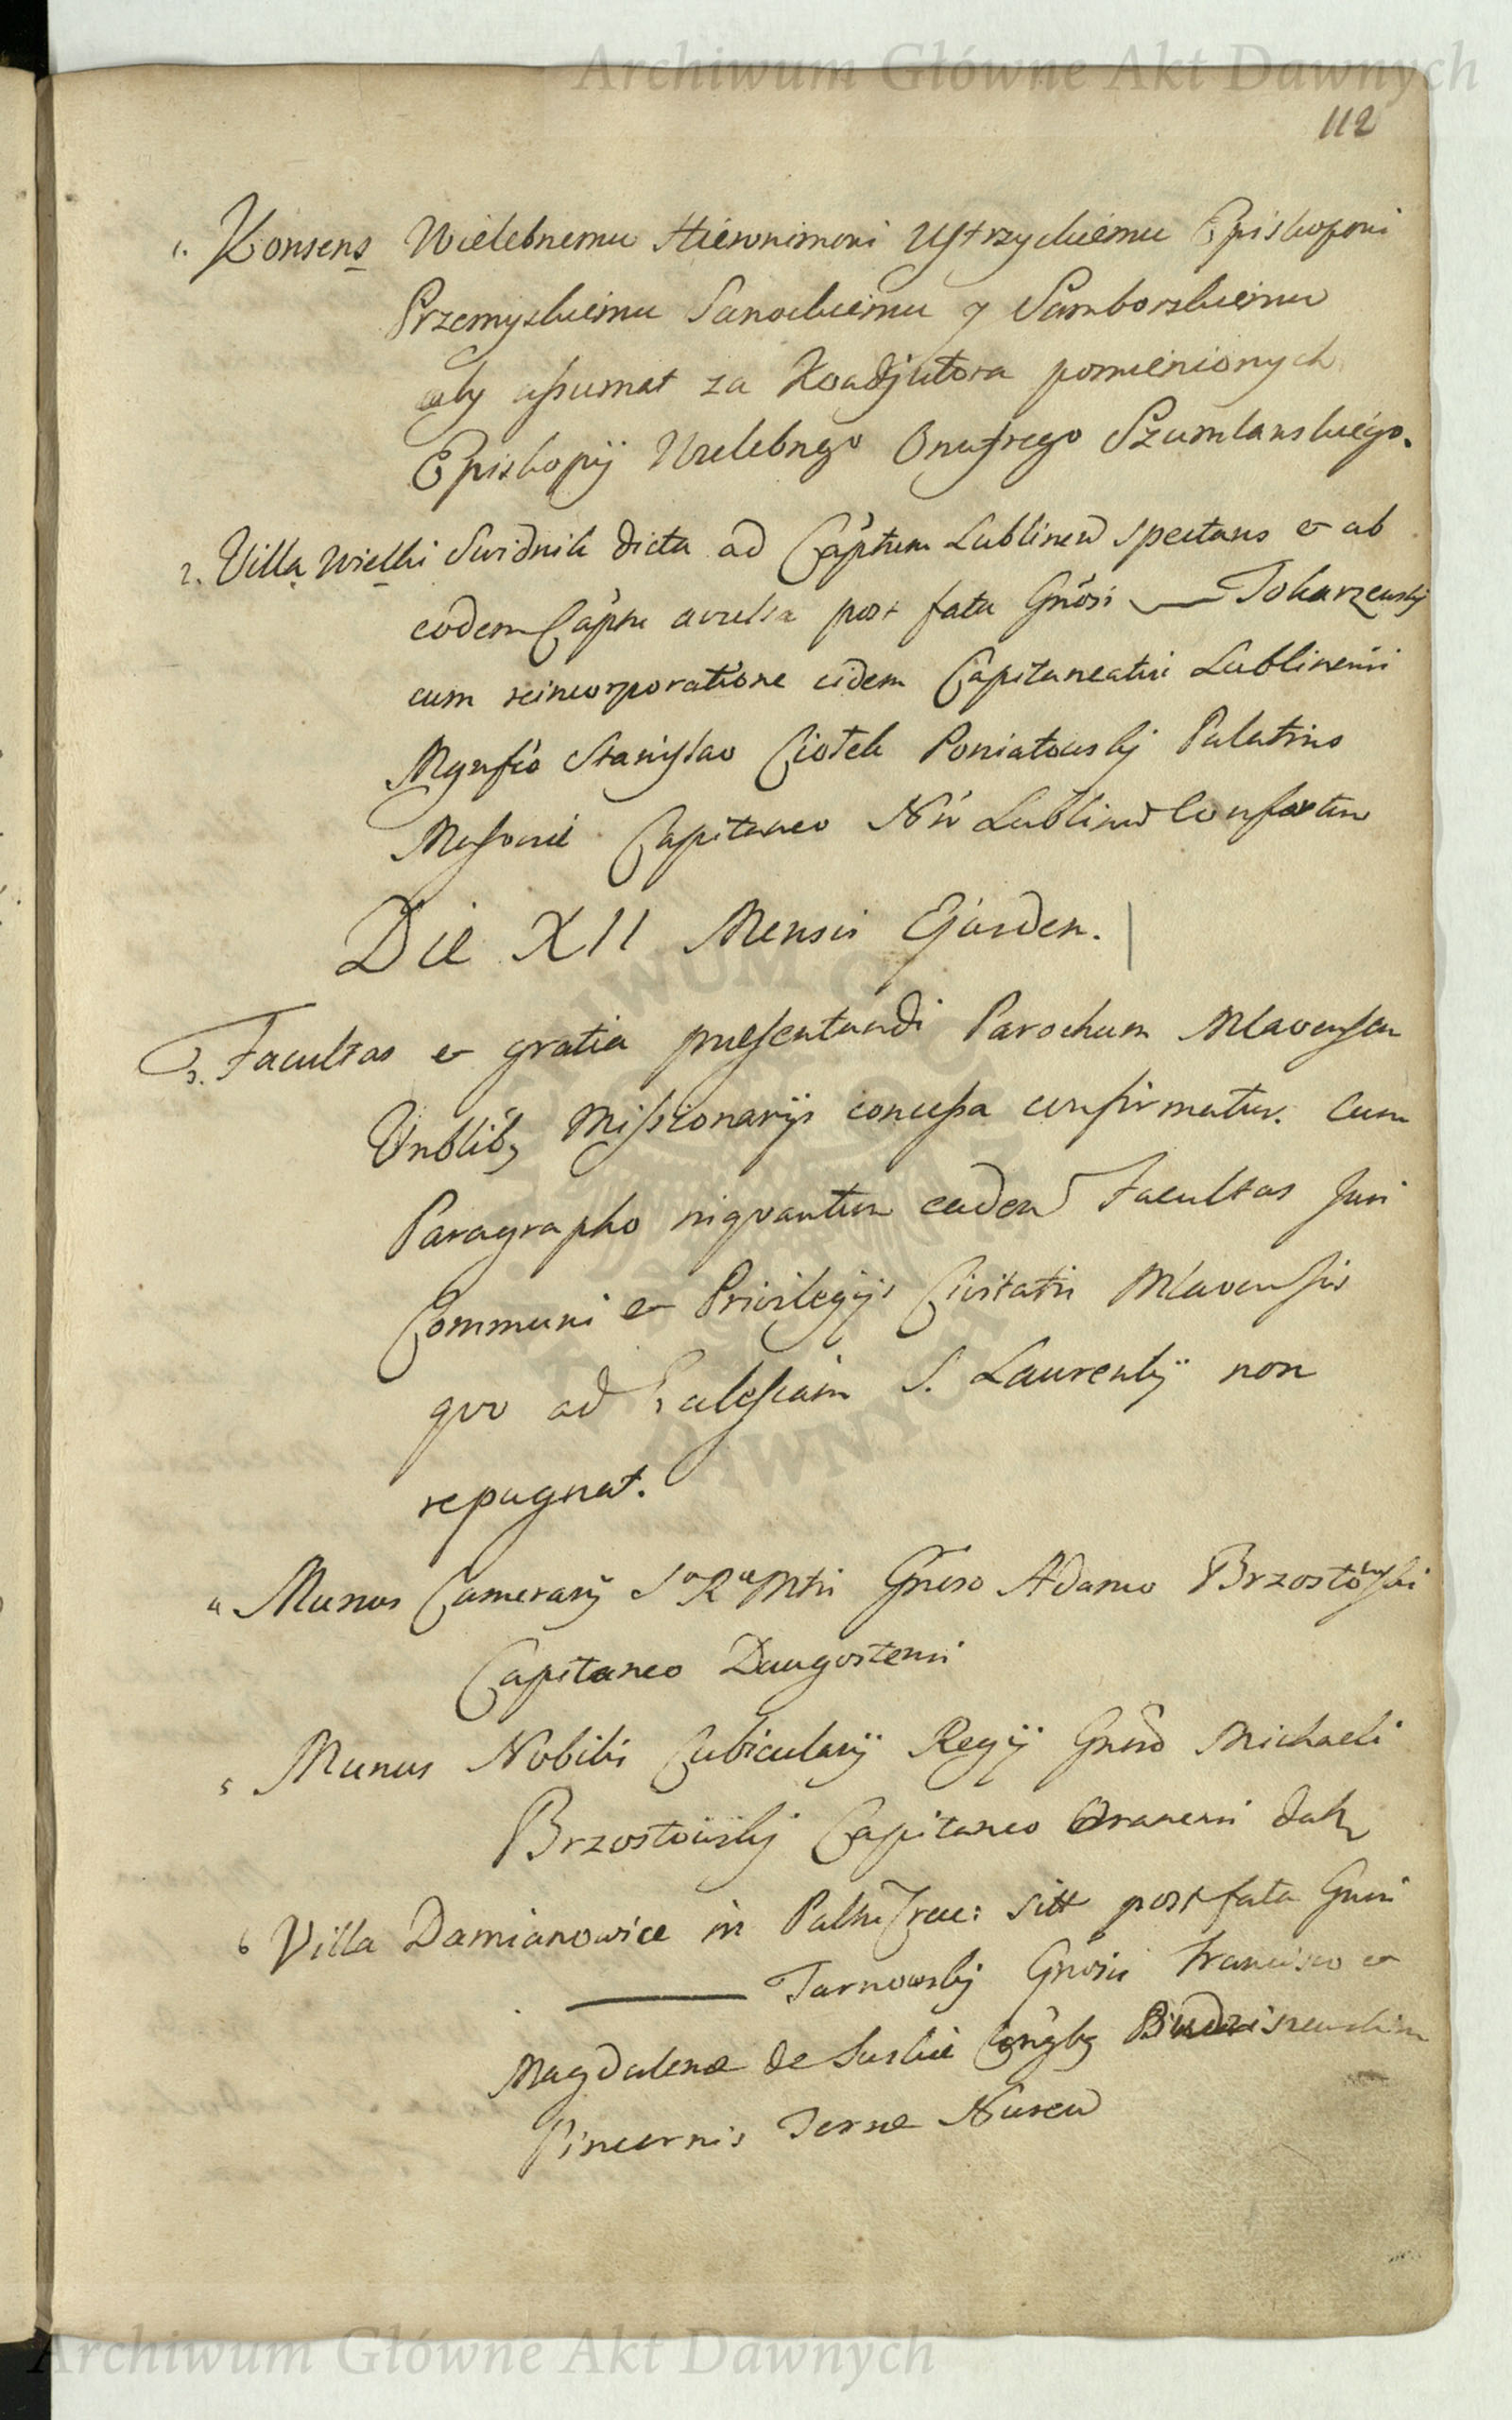 Archiwum Główne Akt Dawnych
112
1. Konsens Wielebnemu Hieronimoni Ustrzyckiemu Episkoponi
Przemyskiemu Sanockiemu y Samborskiemu
aby assumat za Koadjutora pomienionych
Episkopij Wielebngo Onufrego Szumlanskiego.
2. Villa Wielki Swidnik dicta ad Capttum Lublinen spectans et ab
eodem Captu avulsa post fata Gnosi — Tokarzewskj
cum reincorporatione eidem Capitaneatui Lublinensi
Mgnfco Stanislao Ciolek Poniatowskj Palatino
Masoviæ Capitaneo Nro Lublinen Confertur
Die XII Mensis Ejusdem.
3. Facultas et gratia præsentandi Parochum Mlavensem
Vnblibq Missionarijs concessa confirmatur. Cum
Paragrapho inqvantum eadem Facultas Juri
Communi et Privilegijs Civitatis Mlavensis
qvo ad Ecclesiam S. Laurentij non
repugnat.
4 Munus Camerarij S R Mtis Gneso Adamo Brzostowski
Capitaneo Daugostensi
5 Munus Nobilis Cubicularij Regij Gneso Michaeli
Brzostowskj Capitaneo datz
6 Villa Damianowice in Paltu Crac: sitt post fata Gnsi
— Tarnowskj Gnosis Francisco et
Magdalenæ de Suskie Cnjgbq
Pincernis Terræ Nuren
ARCHIWUM GŁÓWNE
AKT DAWNYCH
Archiwum Główne Akt Dawnych